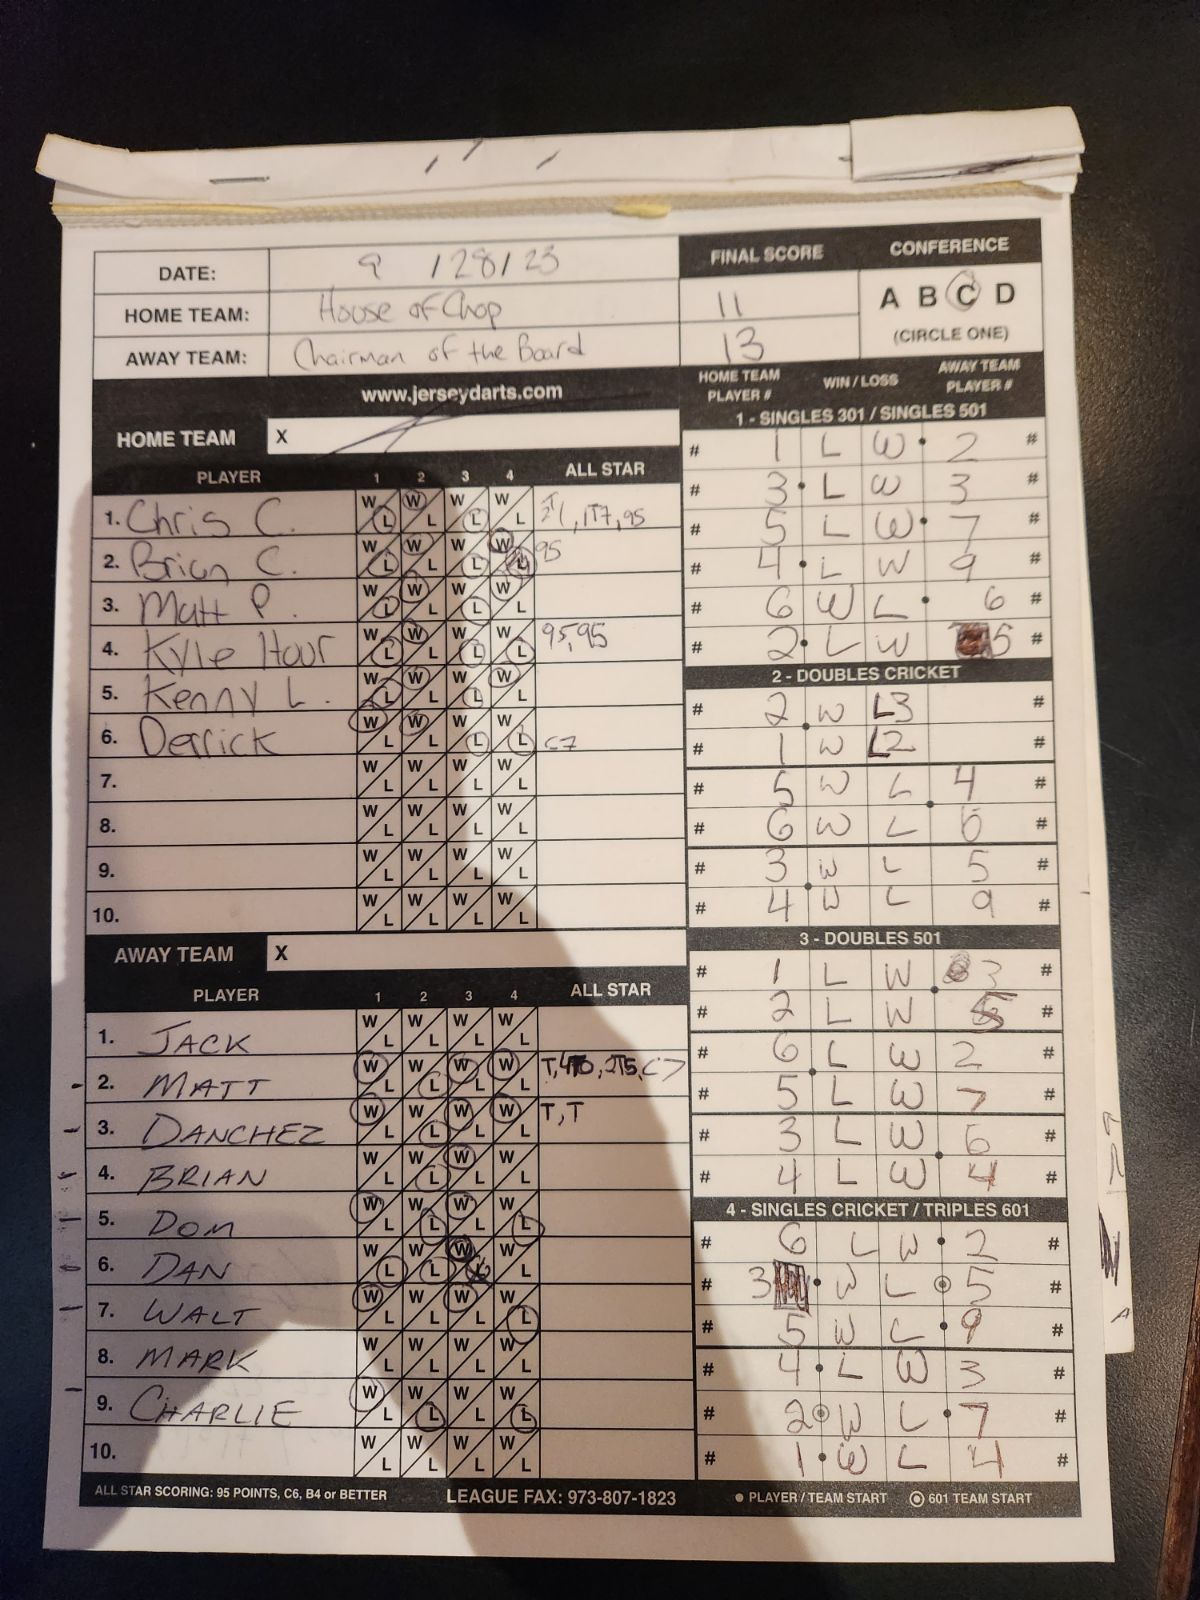 DATE: 9 / 28 / 23
HOME TEAM: House of Chop
AWAY TEAM: Chairman of the Board
FINAL SCORE
11
13
CONFERENCE
A B C D
(CIRCLE ONE)
www.jerseydarts.com
HOME TEAM X
PLAYER 1 2 3 4 ALL STAR
1. Chris C. W L W L W L W L 1T7, 95
2. Brian C. W L W L W L W L 95
3. Matt P. W L W L W L W L
4. Kyle Hour W L W L W L W L 95, 95
5. Kenny L. W L W L W L W L
6. Derrick W L W L W L W L C7
7. W L W L W L W L
8. W L W L W L W L
9. W L W L W L W L
10. W L W L W L W L
AWAY TEAM X
PLAYER 1 2 3 4 ALL STAR
1. JACK W L W L W L W L
2. MATT W L W L W L W L T, 2T5, C7
3. DANCHEZ W L W L W L W L T, T
4. BRIAN W L W L W L W L
5. DOM W L W L W L W L
6. DAN W L W L W L W L
7. WALT W L W L W L W L
8. MARK W L W L W L W L
9. CHARLIE W L W L W L W L
10. W L W L W L W L
ALL STAR SCORING: 95 POINTS, C6, B4 or BETTER
LEAGUE FAX: 973-807-1823
HOME TEAM PLAYER # WIN / LOSS AWAY TEAM PLAYER #
1 - SINGLES 301 / SINGLES 501
# 1 L W 2 #
# 3 L W 3 #
# 5 L W 7 #
# 4 L W 9 #
# 6 W L 6 #
# 2 L W 5 #
2 - DOUBLES CRICKET
# 2 W L 3 #
# 1 W L 2 #
# 5 W L 4 #
# 6 W L 6 #
# 3 W L 5 #
# 4 W L 9 #
3 - DOUBLES 501
# 1 L W 3 #
# 2 L W 5 #
# 6 L W 2 #
# 5 L W 7 #
# 3 L W 6 #
# 4 L W 4 #
4 - SINGLES CRICKET / TRIPLES 601
# 6 L W 2 #
# 3 W L 5 #
# 5 W L 9 #
# 4 L W 3 #
# 2 W L 7 #
# 1 W L 4 #
PLAYER / TEAM START 601 TEAM START